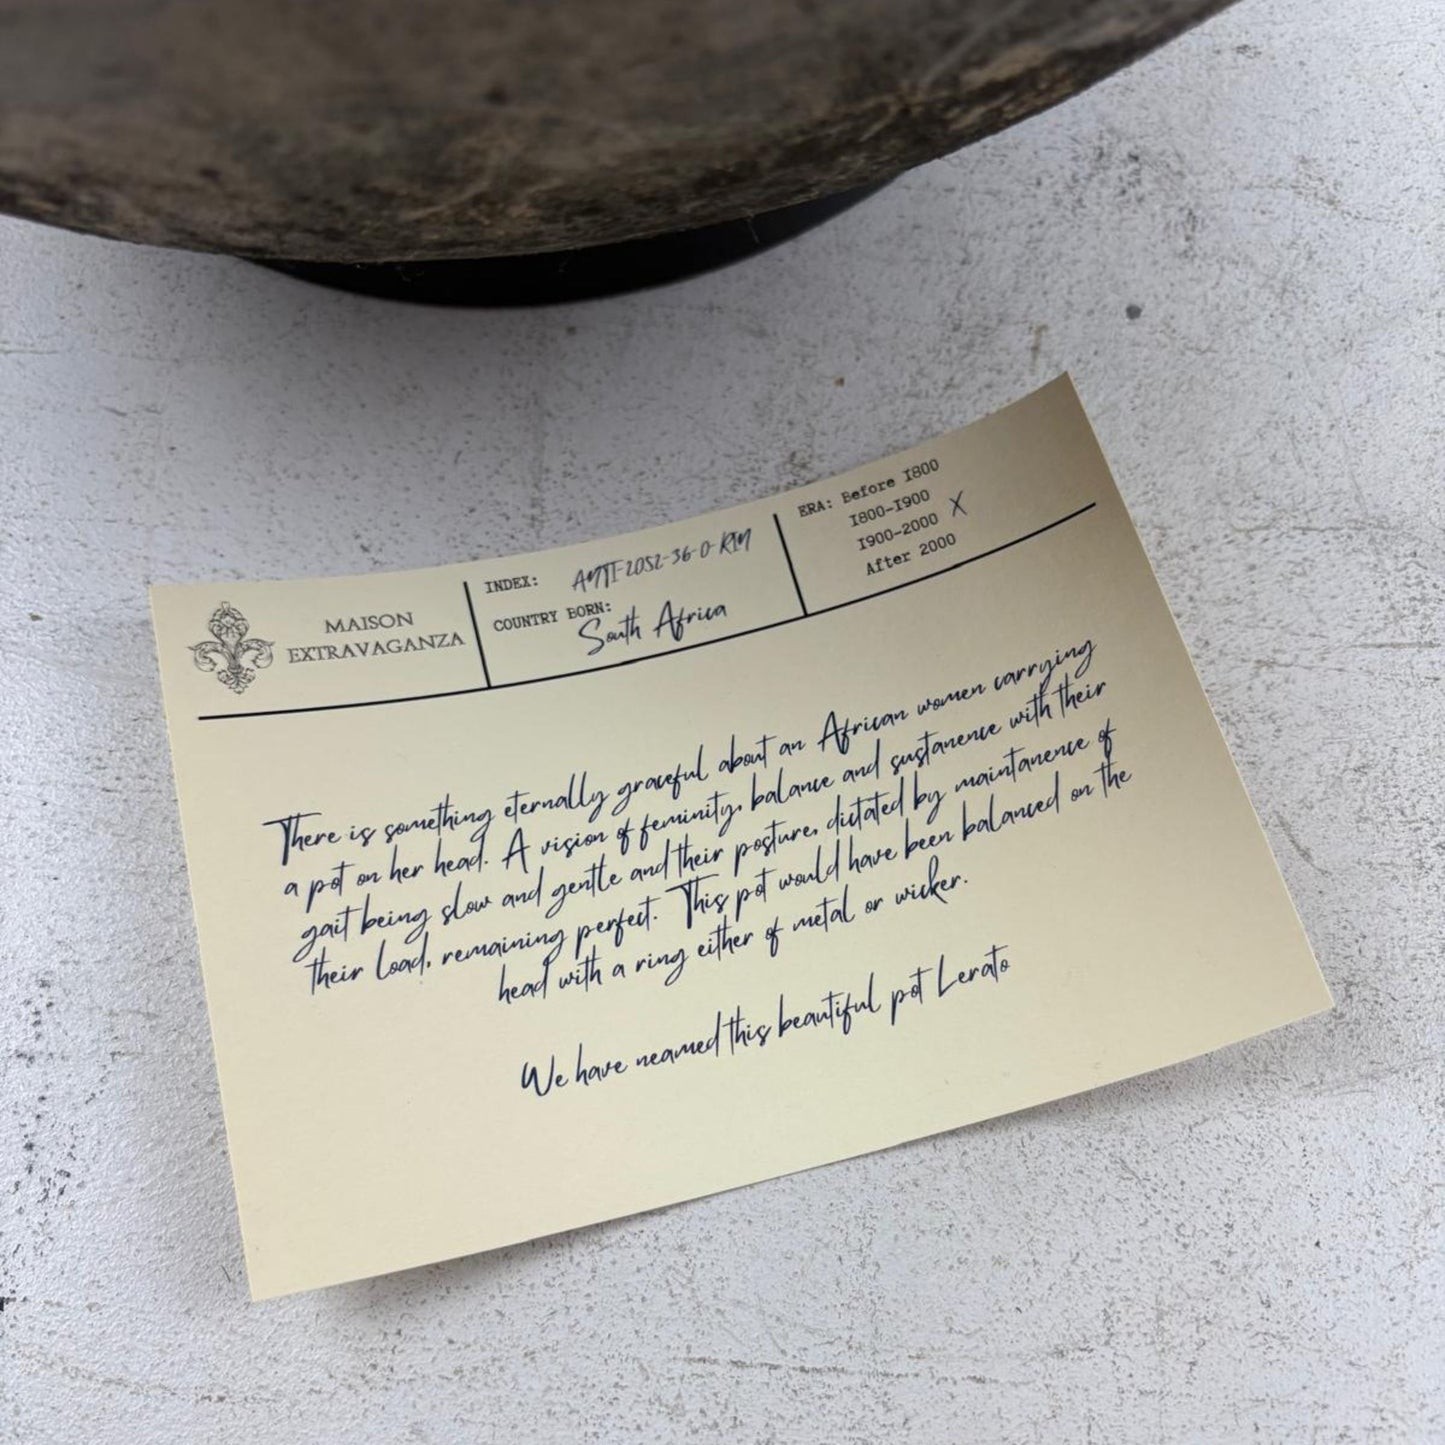 MAISON
EXTRAVAGANZA
INDEX: ANTT-2052-36-0-RM
COUNTRY BORN:
South Africa
ERA: Before 1800
1800-1900
1900-2000 X
After 2000
There is something eternally graceful about an African women carrying
a pot on her head. A vision of feminity, balance and sustanence with their
gait being slow and gentle and their posture, dictated by maintanence of
their load, remaining perfect. This pot would have been balanced on the
head with a ring either of metal or wicker.
We have neamed this beautiful pot Lerato